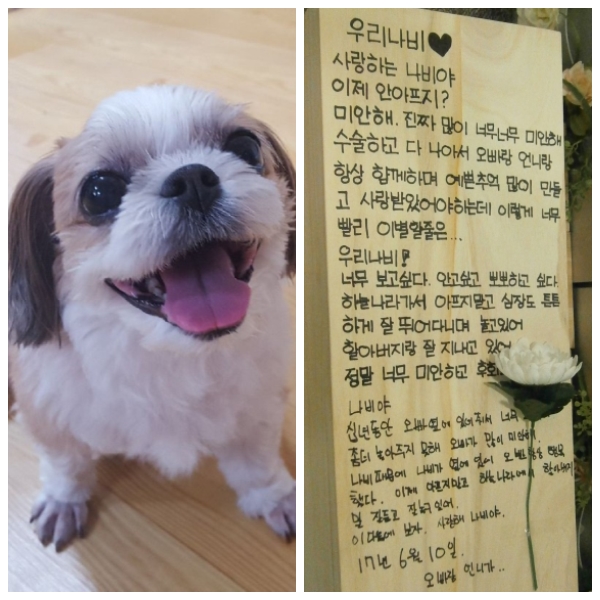 우리나비♥
사랑하는 나비야
이제 안아프지?
미안해. 진짜 많이 너무너무 미안해
수술하고 다 나아서 오빠랑 언니랑
항상 함께하며 예쁜추억 많이 만들
고 사랑받았어야하는데 이렇게 너무
빨리 이별할줄은...
우리나비!
너무 보고싶다. 안고싶고 뽀뽀하고 싶다.
하늘나라가서 아프지말고 심장도 튼튼
하게 잘 뛰어다니며 놀고있어
할아버지랑 잘 지내고 있어
정말 너무 미안하고
나비야
오빠옆에 있어줘서
좀더 놀아주지 못해 오빠가 많이 미안해.
나비때문에 나비가 옆에 있어
했다. 이제 아프지말고 하늘나라에서
말 잘듣고 잘놀고있어.
이 다음에 보자. 사랑해 나비야.
17년 6월 10일.
오빠랑 언니가..